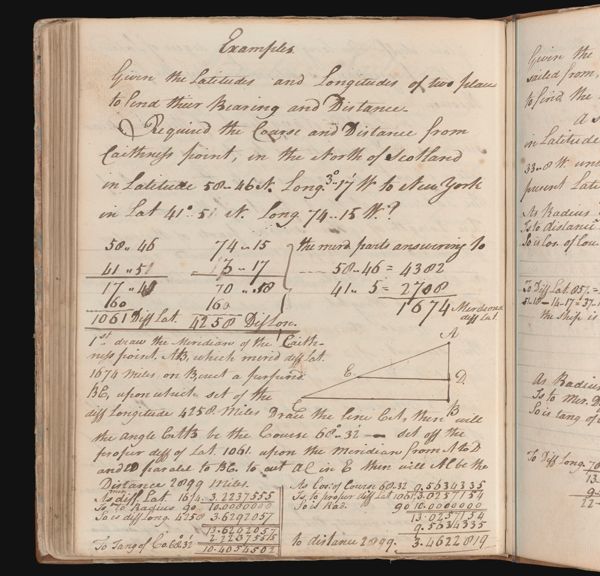 Examples
Given the Latitudes and Longitudes of two places
to find their Bearing and Distance
Required the Course and Distance from
Caithness point, in the North of Scotland
in Latitude 58..46 N. Long. 3°..17' W to New York
in Lat 41°.5 N. Long 74..15 W.?
58.. 46 74..15 the merid parts answering to
41..5 3..17 58..46 = 4382
17..41 70..58 41..5 = 2708
60 60 1674 Meridional diff Lat.
1061 Diff Lat. 4258 Diff Lon.
1st draw the Meridian of the Caith-
ness point. AB, which merid diff Lat.
1674 miles on B erect a
BC, upon which set of the
diff Longitude 4258 Miles Draw the line CA, then will
the angle CAB be the Course 68°..32' — set off the
proper diff of Lat 1061. upon the Meridian from A to D
and D paralel to BC to cut AC in E then will AE be the
Distance 2899 Miles.
A
E D.
C B
As mer diff Lat 1674. 3.2237555
Is To Radius 90 10.0000000
So is diff Long. 4258 3.6292057
13.6292057
3.2237555
To Tang of Co. 68.32' 10.4054502
As Cos. of Course 68.32 9.5634335
Is to proper diff Lat 1061 3.0257154
So is Rad. 90 10.0000000
13.0257154
9.5634335
to distance 2899. 3.4622819
Given the
sailed from,
to find the
A
in Latitude
33..8 W
present Lati
As Radius
Is to distance
So is Cos. of Cou
To Diff Lat. 851.
the Ship is
As Radius
Is to Mer. D
So is tang of
To Diff Long.